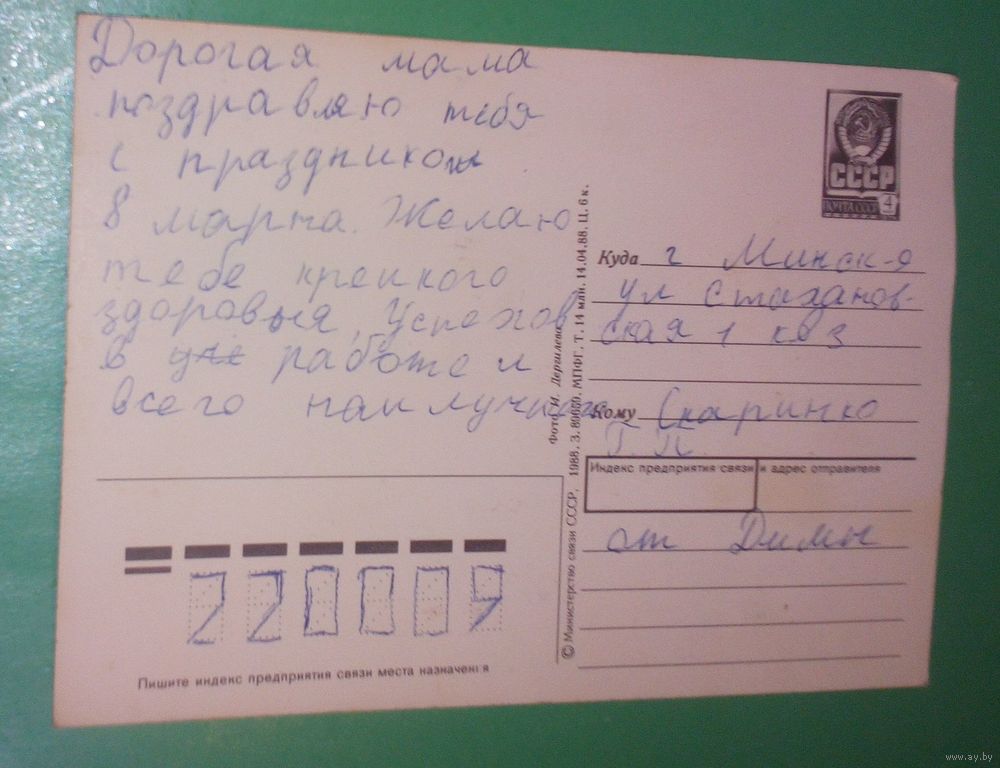 Дорогая мама
поздравляю тебя
с праздником
8 марта. Желаю
тебе крепкого
здоровья, Успехов
в уче работе и
всего наилучшего
Фото И. Дергилева
© Министерство связи СССР, 1988. З. 80660. МПФГ. Т. 14 млн. 14.04.88. Ц. 6 к.
СССР
ПОЧТА СССР
4
Куда г Минск-9
ул Стаханов-
ская 1 кв 3
Кому Скаринко
Г. П.
Индекс предприятия связи и адрес отправителя
от Димы
220009
Пишите индекс предприятия связи места назначения
www.ay.by